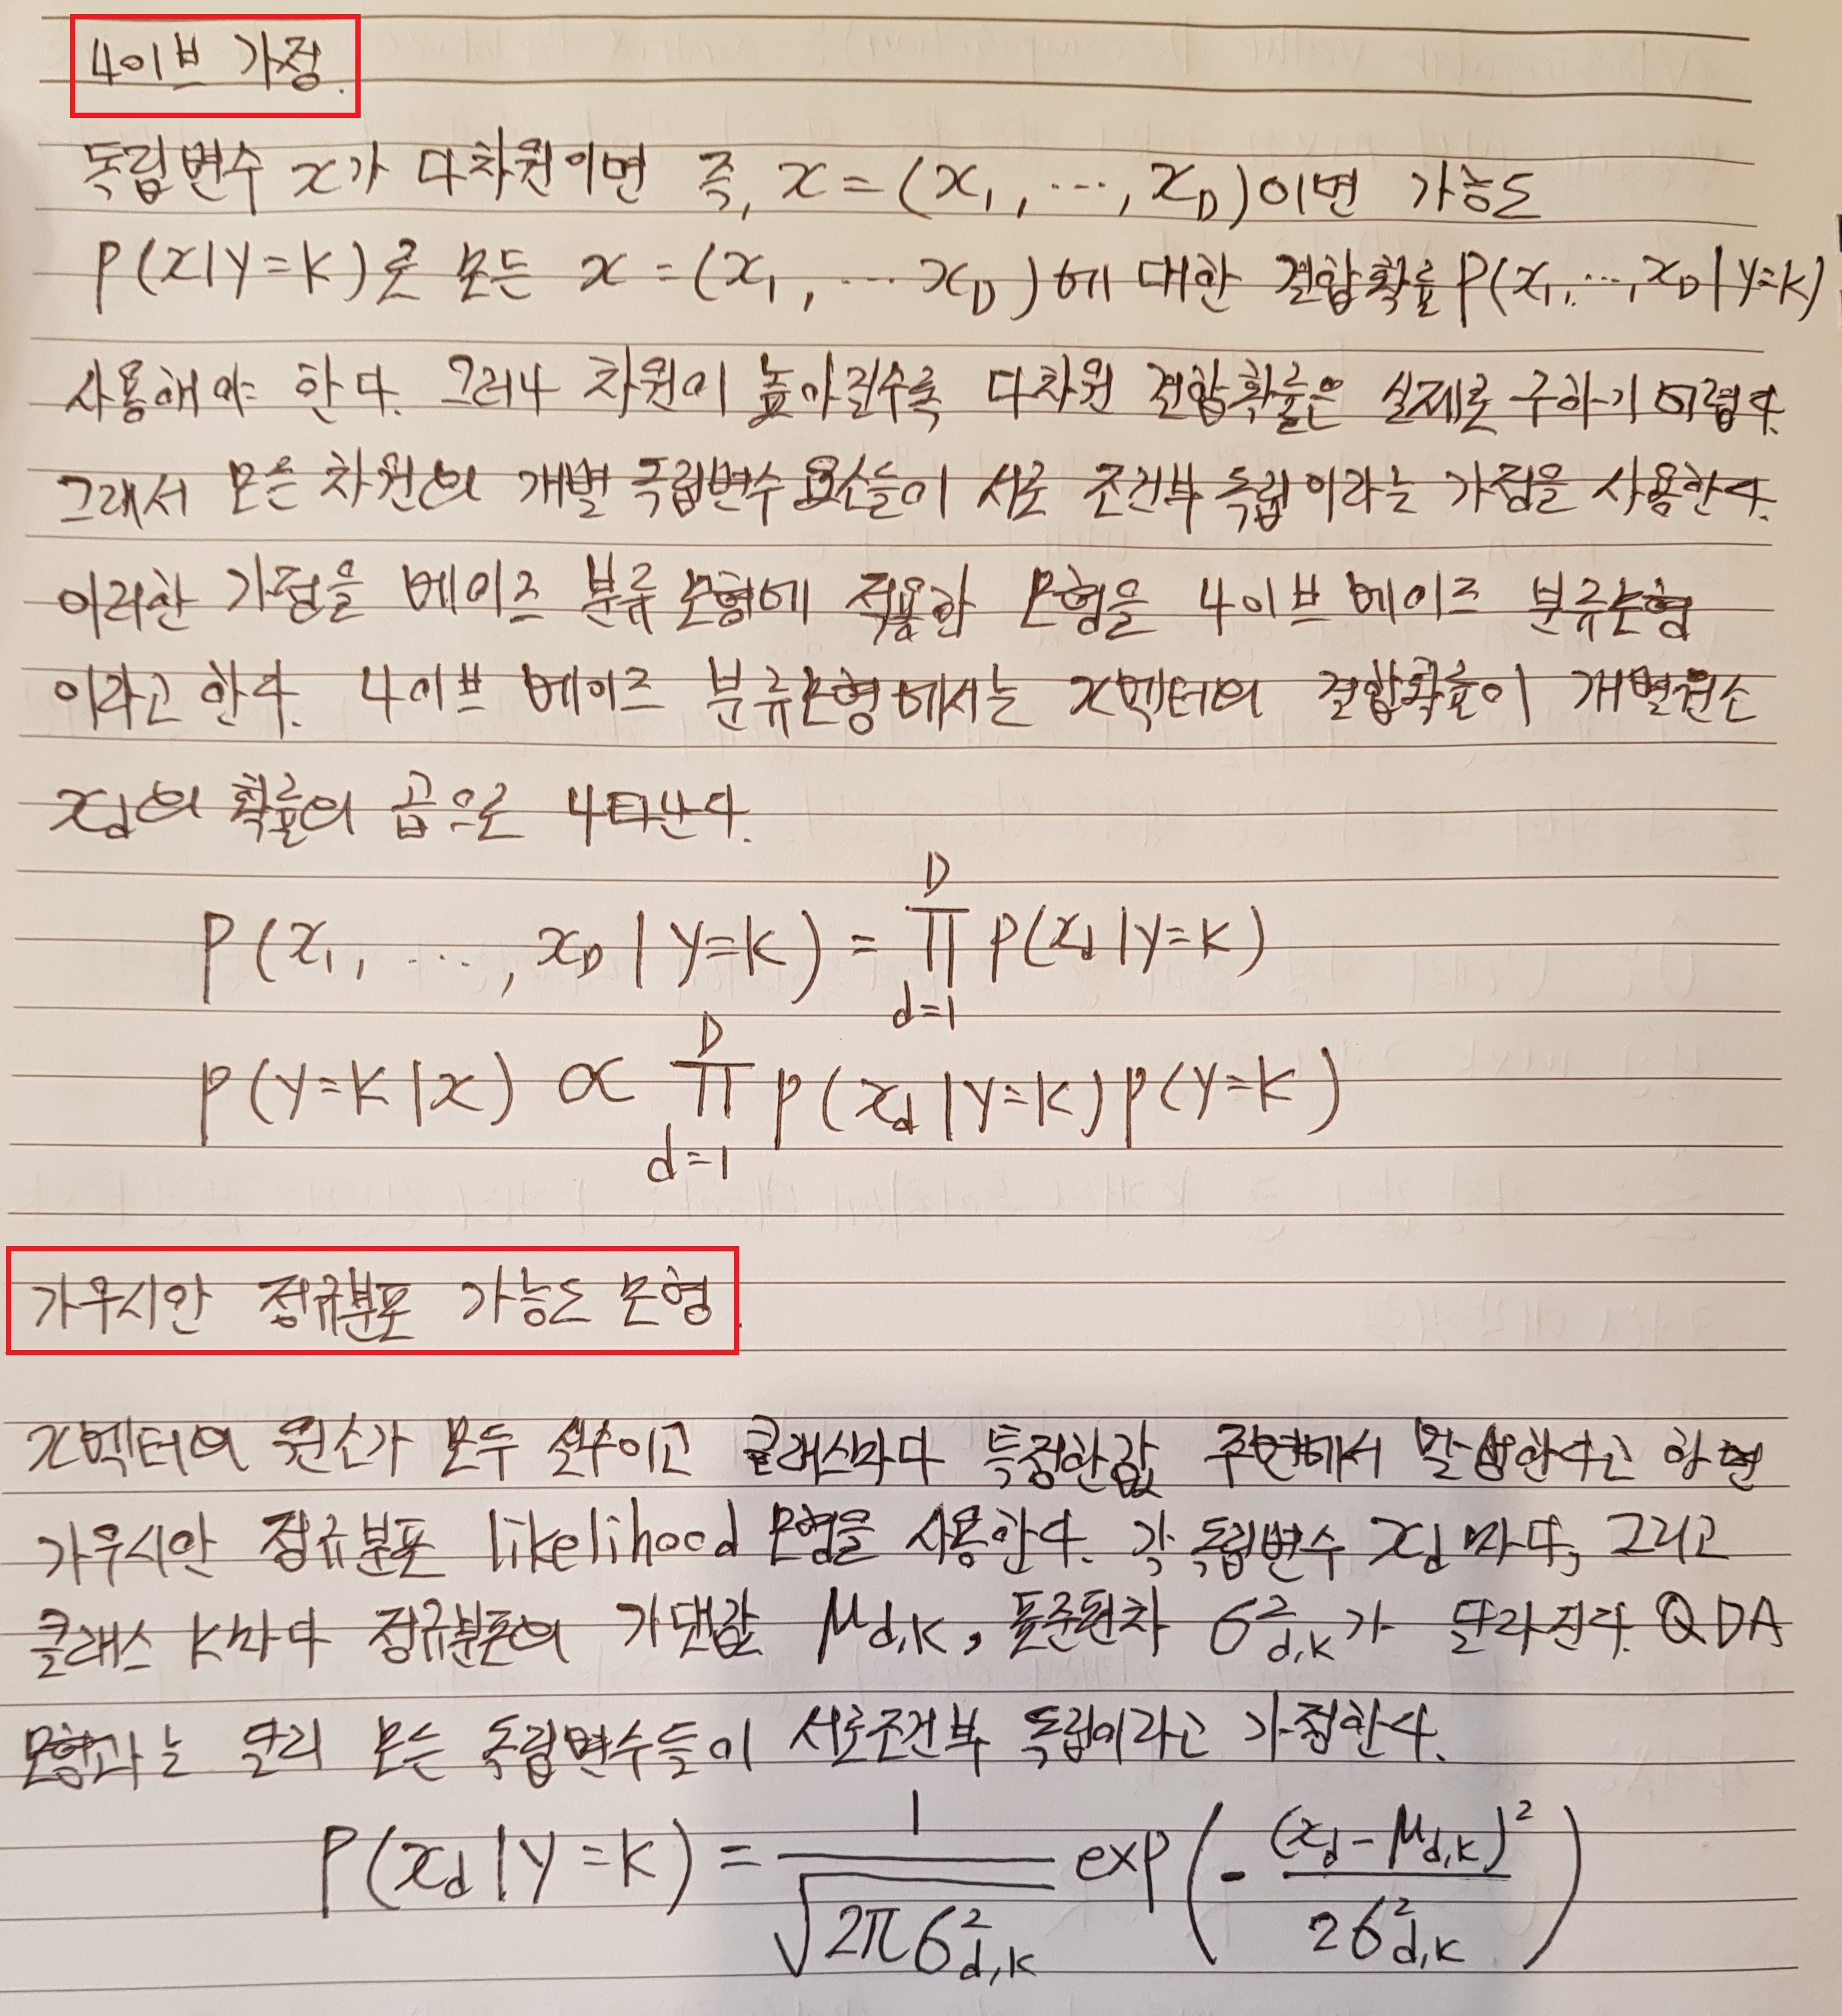 나이브 가정.
독립변수 x가 다차원이면 즉, x = (x₁, ..., x_D)이면 가능도
P(x|y=k)로 모든 x = (x₁, ... x_D)에 대한 결합확률 P(x₁, ..., x_D|y=k)
사용해야 한다. 그러나 차원이 높아질수록 다차원 결합확률은 실제로 구하기 어렵다.
그래서 모든 차원의 개별 독립변수 요소들이 서로 조건부 독립이라는 가정을 사용한다.
이러한 가정을 베이즈 분류 모형에 적용한 모형을 나이브 베이즈 분류모형
이라고 한다. 나이브 베이즈 분류모형에서는 x벡터의 결합확률이 개별원소
x_d의 확률의 곱으로 나타난다.
P(x₁, ..., x_D | y=k) = ∏_{d=1}^{D} P(x_d | y=k)
P(y=k | x) ∝ ∏_{d=1}^{D} P(x_d | y=k) P(y=k)
가우시안 정규분포 가능도 모형.
x벡터의 원소가 모두 실수이고 클래스마다 특정한값 주변에서 발생한다고 하면
가우시안 정규분포 likelihood 모형을 사용한다. 각 독립변수 x_d마다, 그리고
클래스 k마다 정규분포의 기댓값 μ_{d,k}, 표준편차 σ²_{d,k}가 달라진다. QDA
모형과는 달리 모든 독립변수들이 서로조건부 독립이라고 가정한다.
P(x_d | y=k) = 1/√(2πσ²_{d,k}) exp(-(x_d-μ_{d,k})²/2σ²_{d,k})